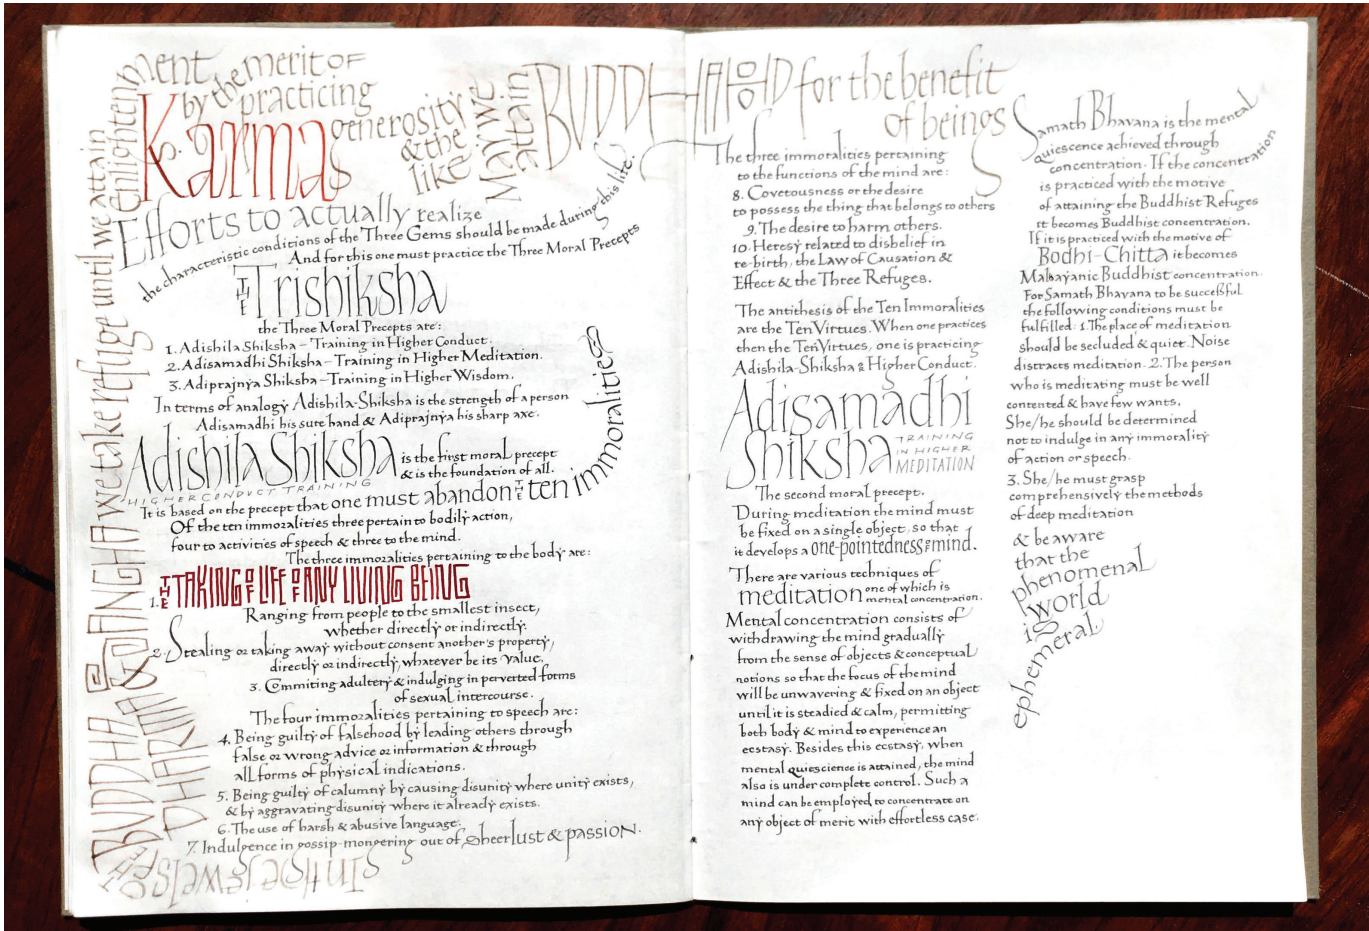 In the jewels
OF THE BUDDHA
DHARMA & SANGHA we take refuge until we attain
Enlightenment
by the merit OF
practicing
generosity
& the
like
May we
attain
BUDDHAHOOD for the benefit
of beings
Karmas
Efforts to actually realize
the characteristic conditions of the Three Gems should be made during this life.
And for this one must practice the Three Moral Precepts
THE Trishiksha
the Three Moral Precepts are:
1. Adishila Shiksha – Training in Higher Conduct.
2. Adisamadhi Shiksha – Training in Higher Meditation.
3. Adiprajnya Shiksha – Training in Higher Wisdom.
In terms of analogy Adishila-Shiksha is the strength of a person
Adisamadhi his sure hand & Adiprajnya his sharp axe.
Adishila Shiksha is the first moral precept
& is the foundation of all.
HIGHER CONDUCT TRAINING
It is based on the precept that one must abandon THE ten immoralities
Of the ten immoralities three pertain to bodily action,
four to activities of speech & three to the mind.
The three immoralities pertaining to the body are:
1. THE TAKING OF LIFE OF ANY LIVING BEING
Ranging from people to the smallest insect,
whether directly or indirectly.
2. Stealing or taking away without consent another's property,
directly or indirectly, whatever be its value.
3. Commiting adultery & indulging in perverted forms
of sexual intercourse.
The four immoralities pertaining to speech are:
4. Being guilty of falsehood by leading others through
false or wrong advice or information & through
all forms of physical indications.
5. Being guilty of calumny by causing disunity where unity exists,
& by aggravating disunity where it already exists.
6. The use of harsh & abusive language.
7. Indulgence in gossip-mongering out of sheer lust & passion.
The three immoralities pertaining
to the functions of the mind are:
8. Covetousness or the desire
to possess the thing that belongs to others
9. The desire to harm others.
10. Heresy related to disbelief in
re-birth, the Law of Causation &
Effect & the Three Refuges.
The antithesis of the Ten Immoralities
are the Ten Virtues. When one practices
then the Ten Virtues, one is practicing
Adishila-Shiksha & Higher Conduct.
Adisamadhi
Shiksha TRAINING
IN HIGHER
MEDITATION
The second moral precept.
During meditation the mind must
be fixed on a single object, so that
it develops a one-pointedness OF mind.
There are various techniques of
meditation one of which is
mental concentration.
Mental concentration consists of
withdrawing the mind gradually
from the sense of objects & conceptual
notions so that the focus of the mind
will be unwavering & fixed on an object
until it is steadied & calm, permitting
both body & mind to experience an
ecstasy. Besides this ecstasy, when
mental quiescience is attained, the mind
also is under complete control. Such a
mind can be employed to concentrate on
any object of merit with effortless ease.
Samath Bhavana is the mental
quiescence achieved through
concentration. If the concentration
is practiced with the motive
of attaining the Buddhist Refuges
it becomes Buddhist concentration.
If it is practiced with the motive of
Bodhi-Chitta it becomes
Mahayanic Buddhist concentration.
For Samath Bhavana to be successful
the following conditions must be
fulfilled: 1. The place of meditation
should be secluded & quiet. Noise
distracts meditation. 2. The person
who is meditating must be well
contented & have few wants.
She/he should be determined
not to indulge in any immorality
of action or speech.
3. She/he must grasp
comprehensively the methods
of deep meditation
& be aware
that the
phenomenal
world
is
ephemeral